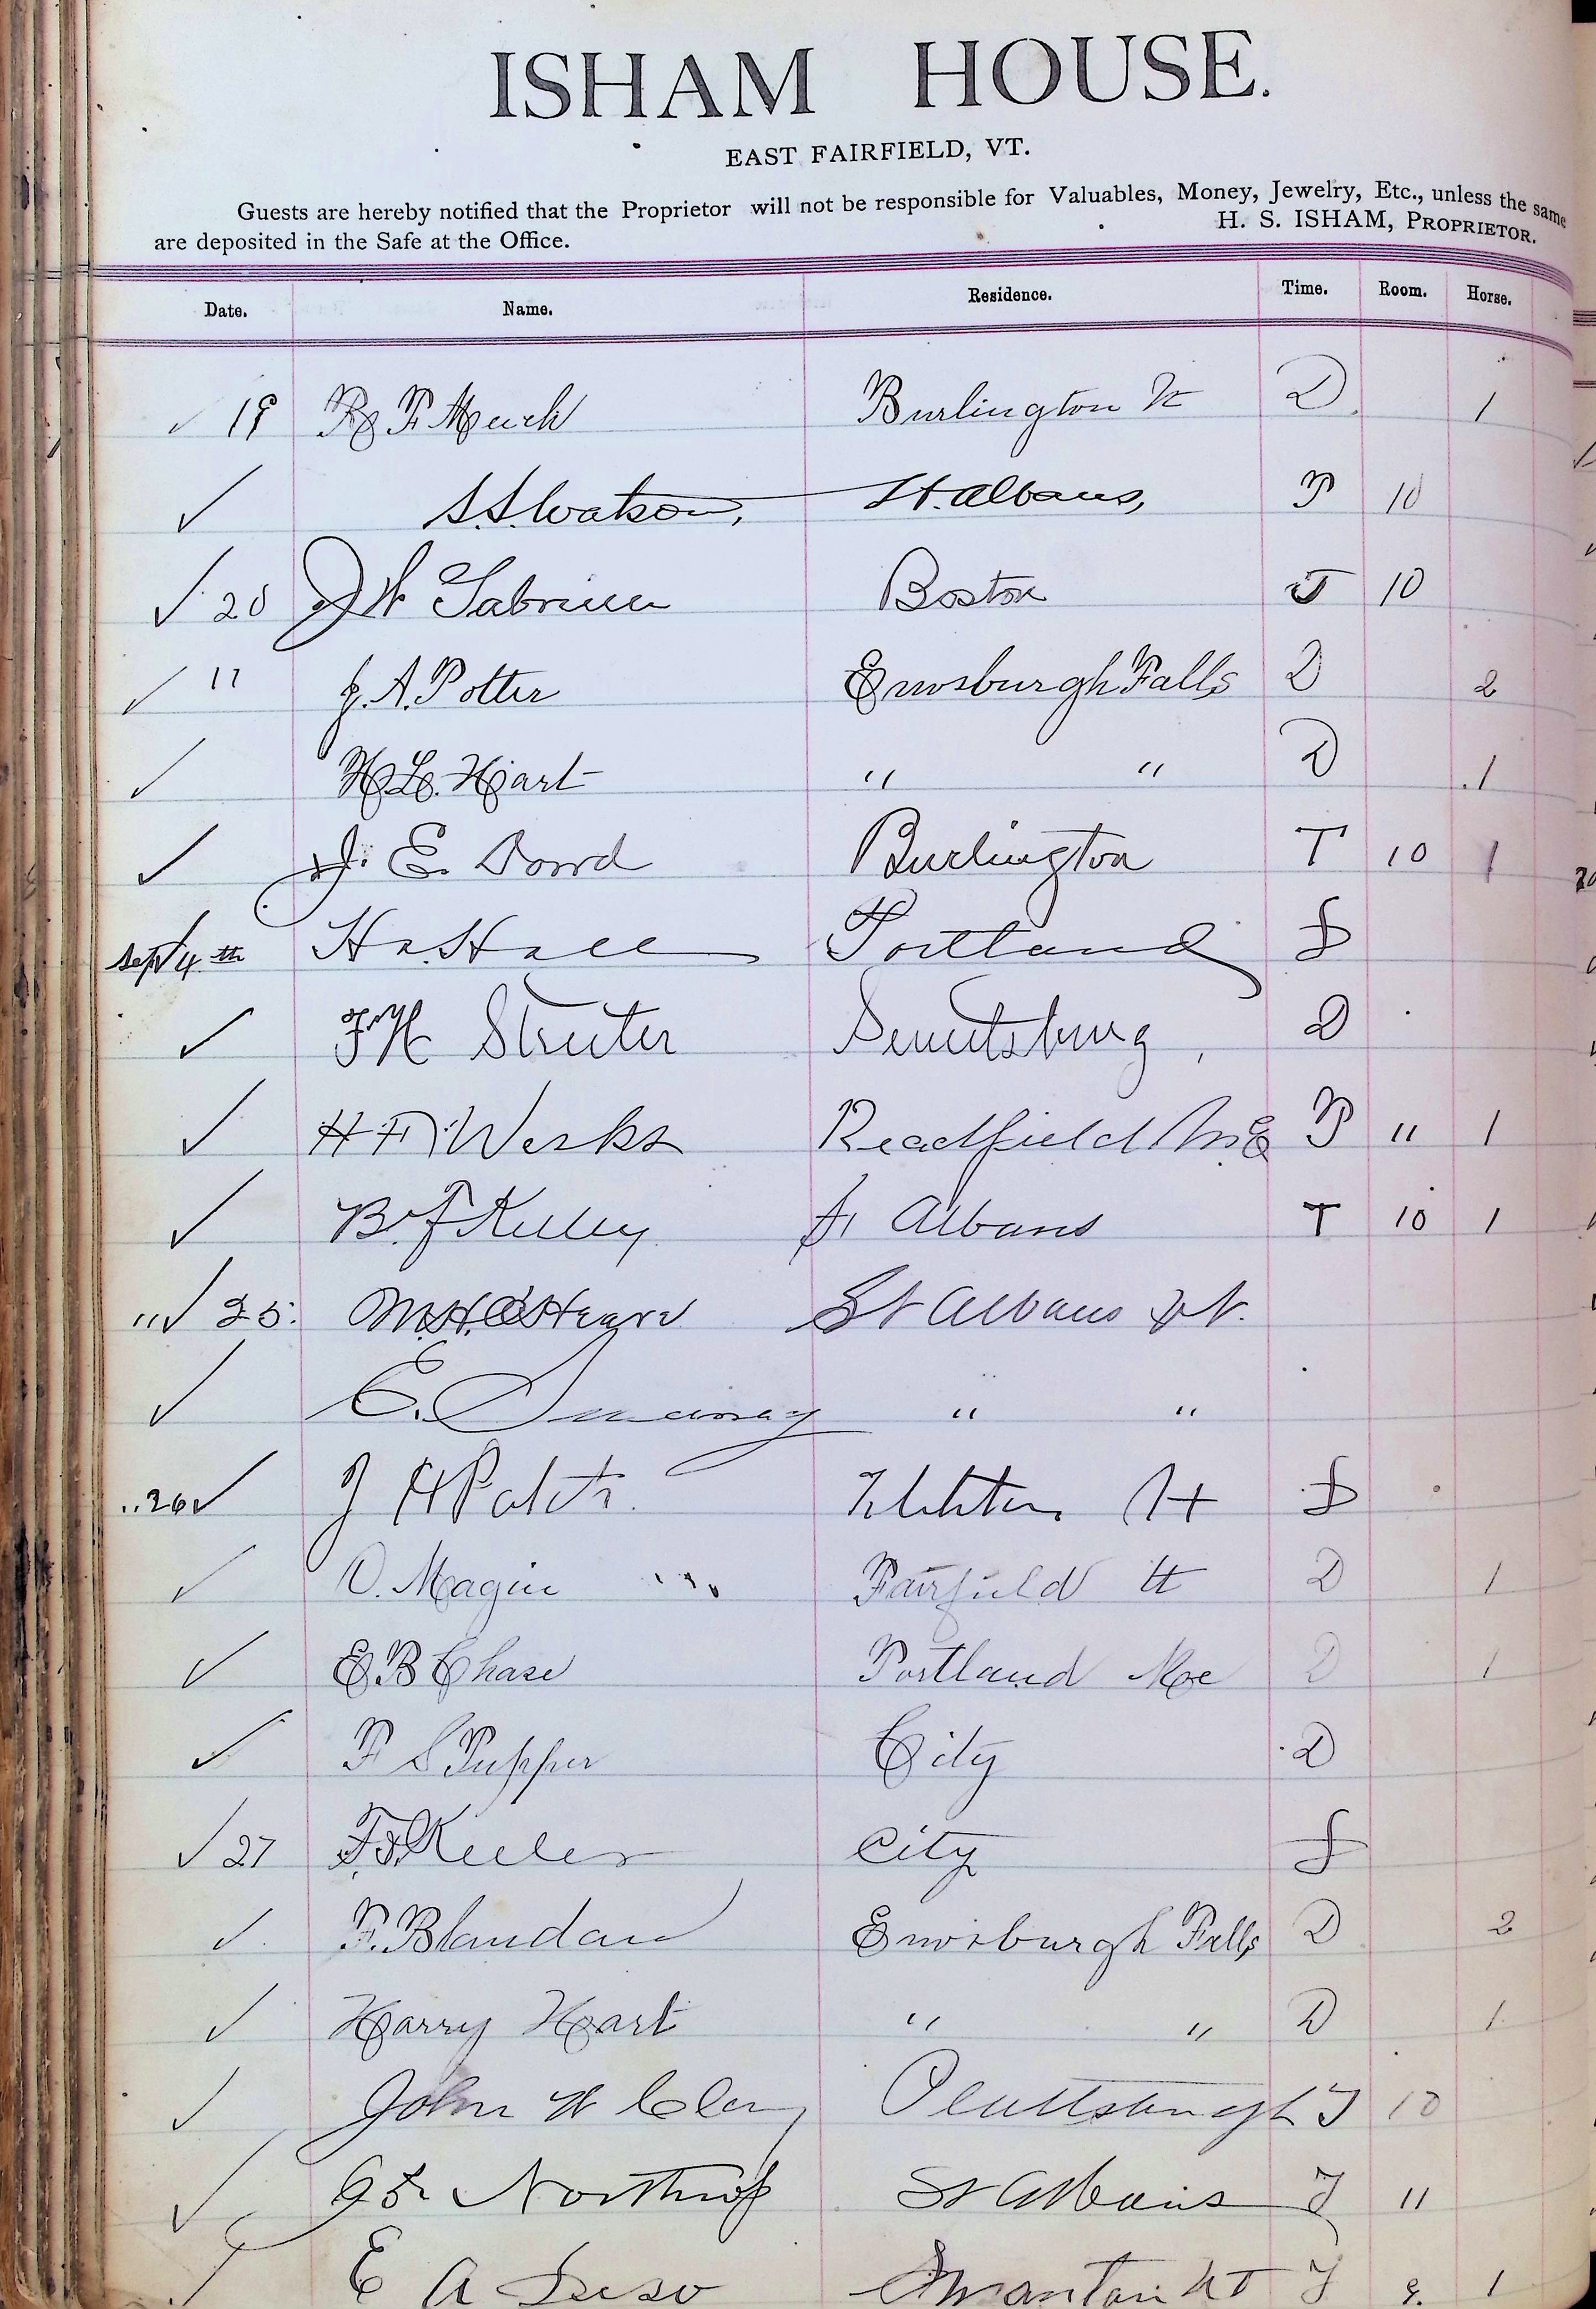 ISHAM HOUSE.
EAST FAIRFIELD, VT.
Guests are hereby notified that the Proprietor will not be responsible for Valuables, Money, Jewelry, Etc., unless the same
are deposited in the Safe at the Office.
H. S. ISHAM, PROPRIETOR.
Date. Name. Residence. Time. Room. Horse.
✓ 19 R F Burlington Vt D 1
✓ S.S. Watson, St. Albans, P 10
✓ 20 J W Boston T 10
✓ " J. A. Potter Enosburgh Falls D 2
✓ H. L. Hart " " D 1
✓ J. E. Dowd Burlington T 10 1
Sept ✓ 4th Hall Portland
✓ F H Streeter D
✓ H F Weeks Readfield Me P 11 1
✓ B. F Kelley St Albans T 10 1
" ✓ 25. M. H. O'Heare St Albans Vt.
✓ E. " "
" 26 ✓ J H
✓ O. Magin Fairfield Vt D 1
✓ E B Chase Portland Me D 1
✓ F S Tupper City D
✓ 27 Keeler City
✓ F. Blandan Enosburgh Falls D 2
✓ Harry Hart " " D 1
✓ John W Clary Plattsburgh T 10
✓ Northrop St Albans T 11
✓ E A Swanton VT T 9. 1